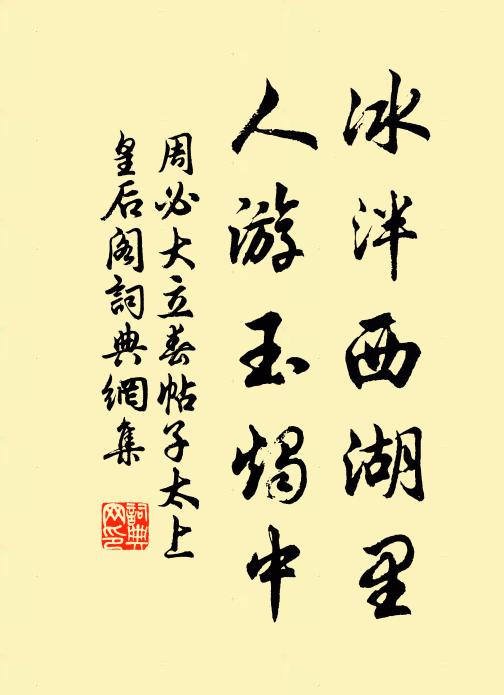 冰泮西湖里
人游玉烛中
周必大立春帖子太上
皇后阁詞典網集
詞典
网印